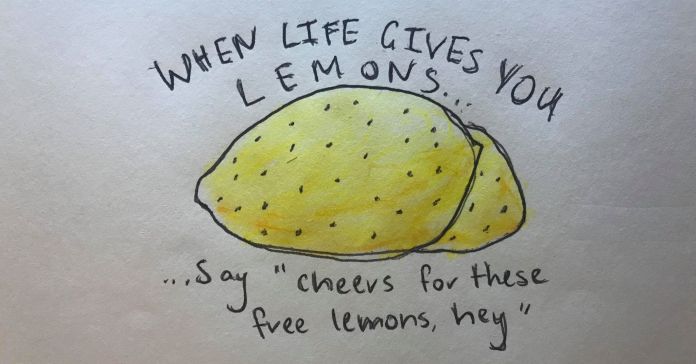 WHEN LIFE GIVES YOU
LEMONS...
...Say "cheers for these
free lemons, hey"